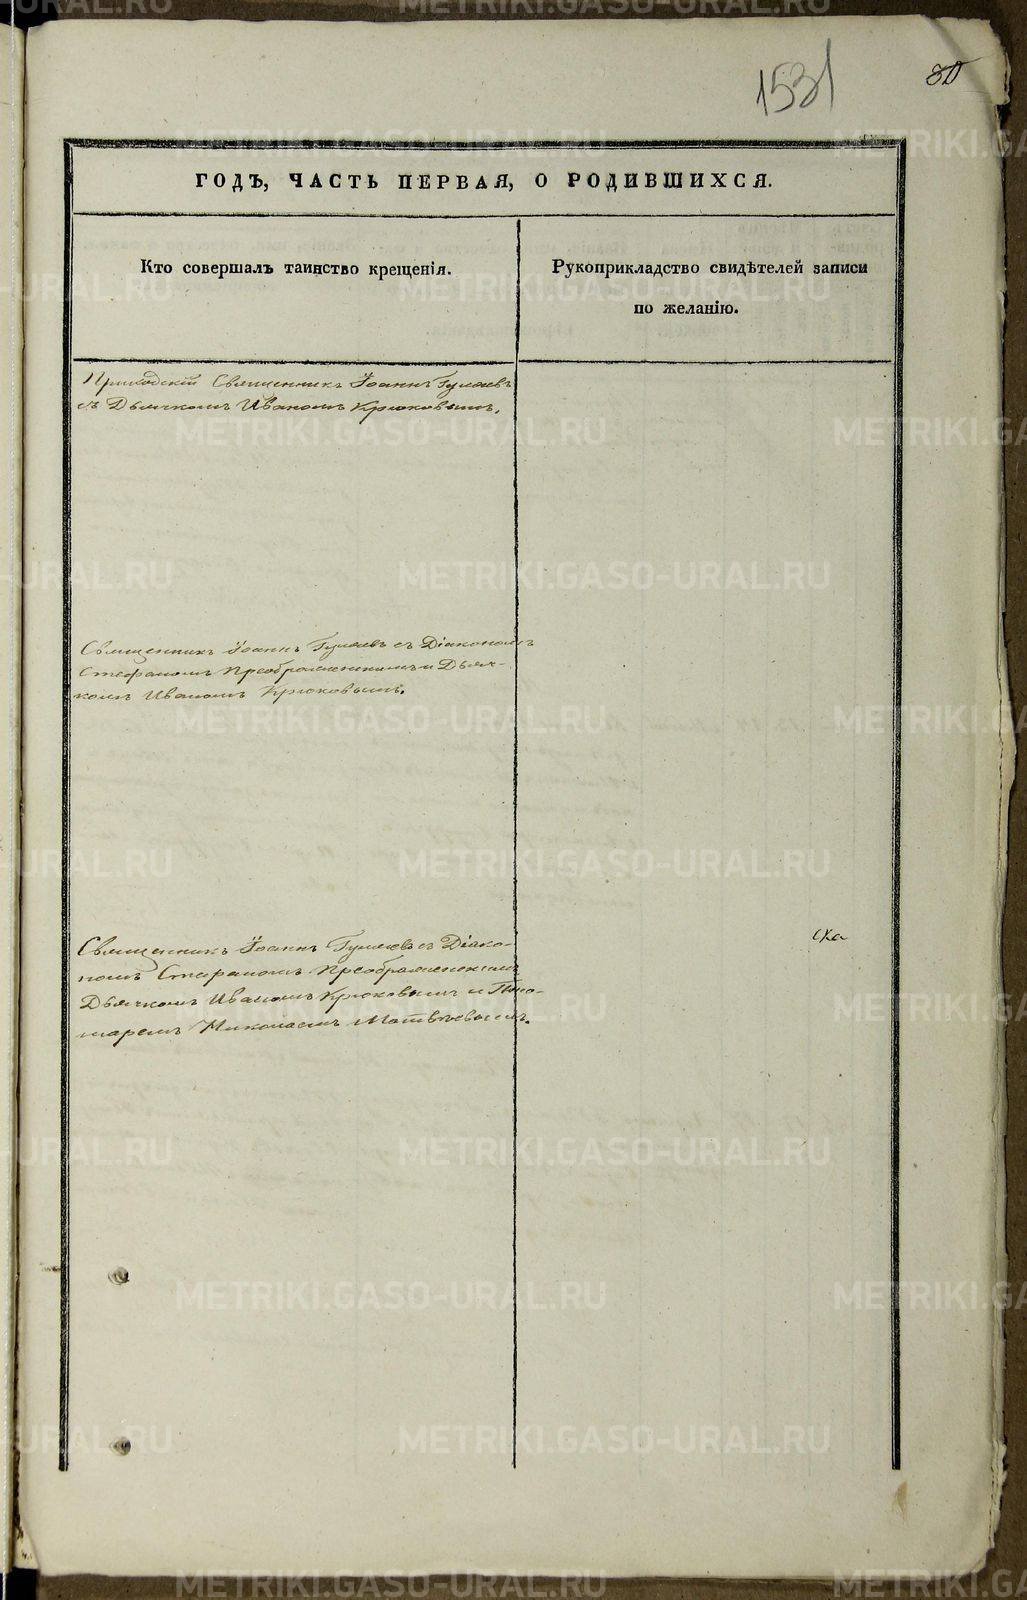 1531
30
ГОДЪ, ЧАСТЬ ПЕРВАЯ, О РОДИВШИХСЯ.
Кто совершалъ таинство крещенія.
Рукоприкладство свидѣтелей записи
по желанію.
Приходскій Священникъ Іоаннъ Гуляевъ
съ Дьячкомъ Иваномъ Крюковымъ.
Священникъ Іоаннъ Гуляевъ съ Діакономъ
Стефаномъ Преображенскимъ и Дьяч-
комъ Иваномъ Крюковымъ.
Священникъ Іоаннъ Гуляевъ съ Діако-
номъ Стефаномъ Преображенскимъ
Дьячкомъ Иваномъ Крюковымъ и Поно-
маремъ Николаемъ Матвѣевымъ.
METRIKI.GASO-URAL.RU